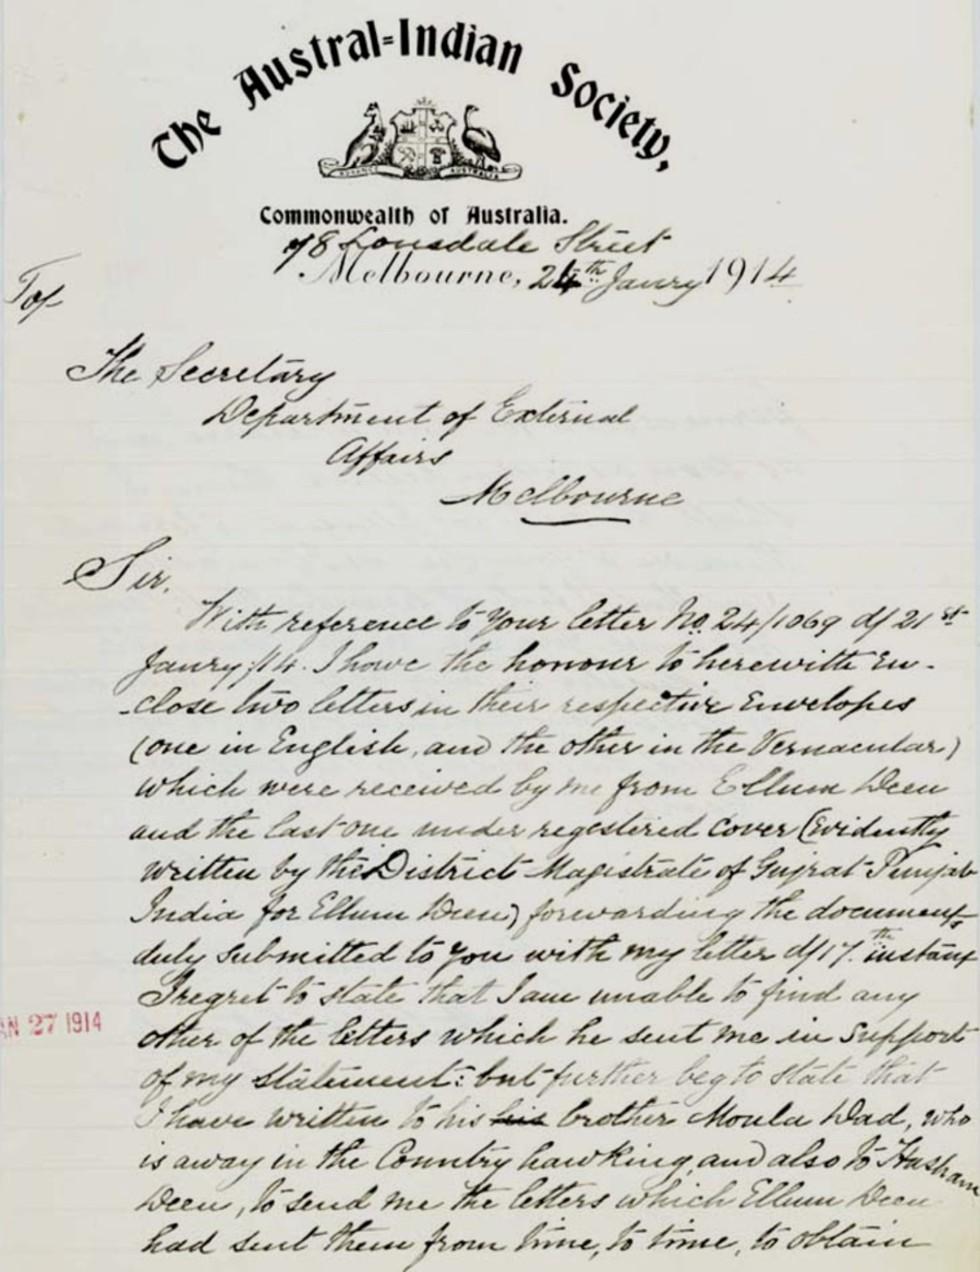 The Austral-Indian Society,
ADVANCE AUSTRALIA
Commonwealth of Australia.
78 Lonsdale Street
Melbourne, 24th Janry 1914
To/
The Secretary
Department of External
Affairs
Melbourne
Sir.
With reference to your letter No. 24/1069 d/ 21st
Janry /14. I have the honour to herewith En-
-close two letters in their respective Envelopes
(one in English, and the other in the Vernacular)
which were received by me from Ellum Deen
and the last one under regestered cover (Evidently
written by the District Magistrate of Gujrat Punjab
India for Ellum Deen) forwarding the documents
duly submitted to you with my letter d/ 17th instant
I regret to state that I am unable to find any
other of the letters which he sent me in support
of my statement: but further beg to state that
I have written to his his brother Moula Dad, who
is away in the Country hawking, and also to Hasham
Deen, to send me the letters which Ellum Deen
had sent them from time, to time, to obtain
AN 27 1914